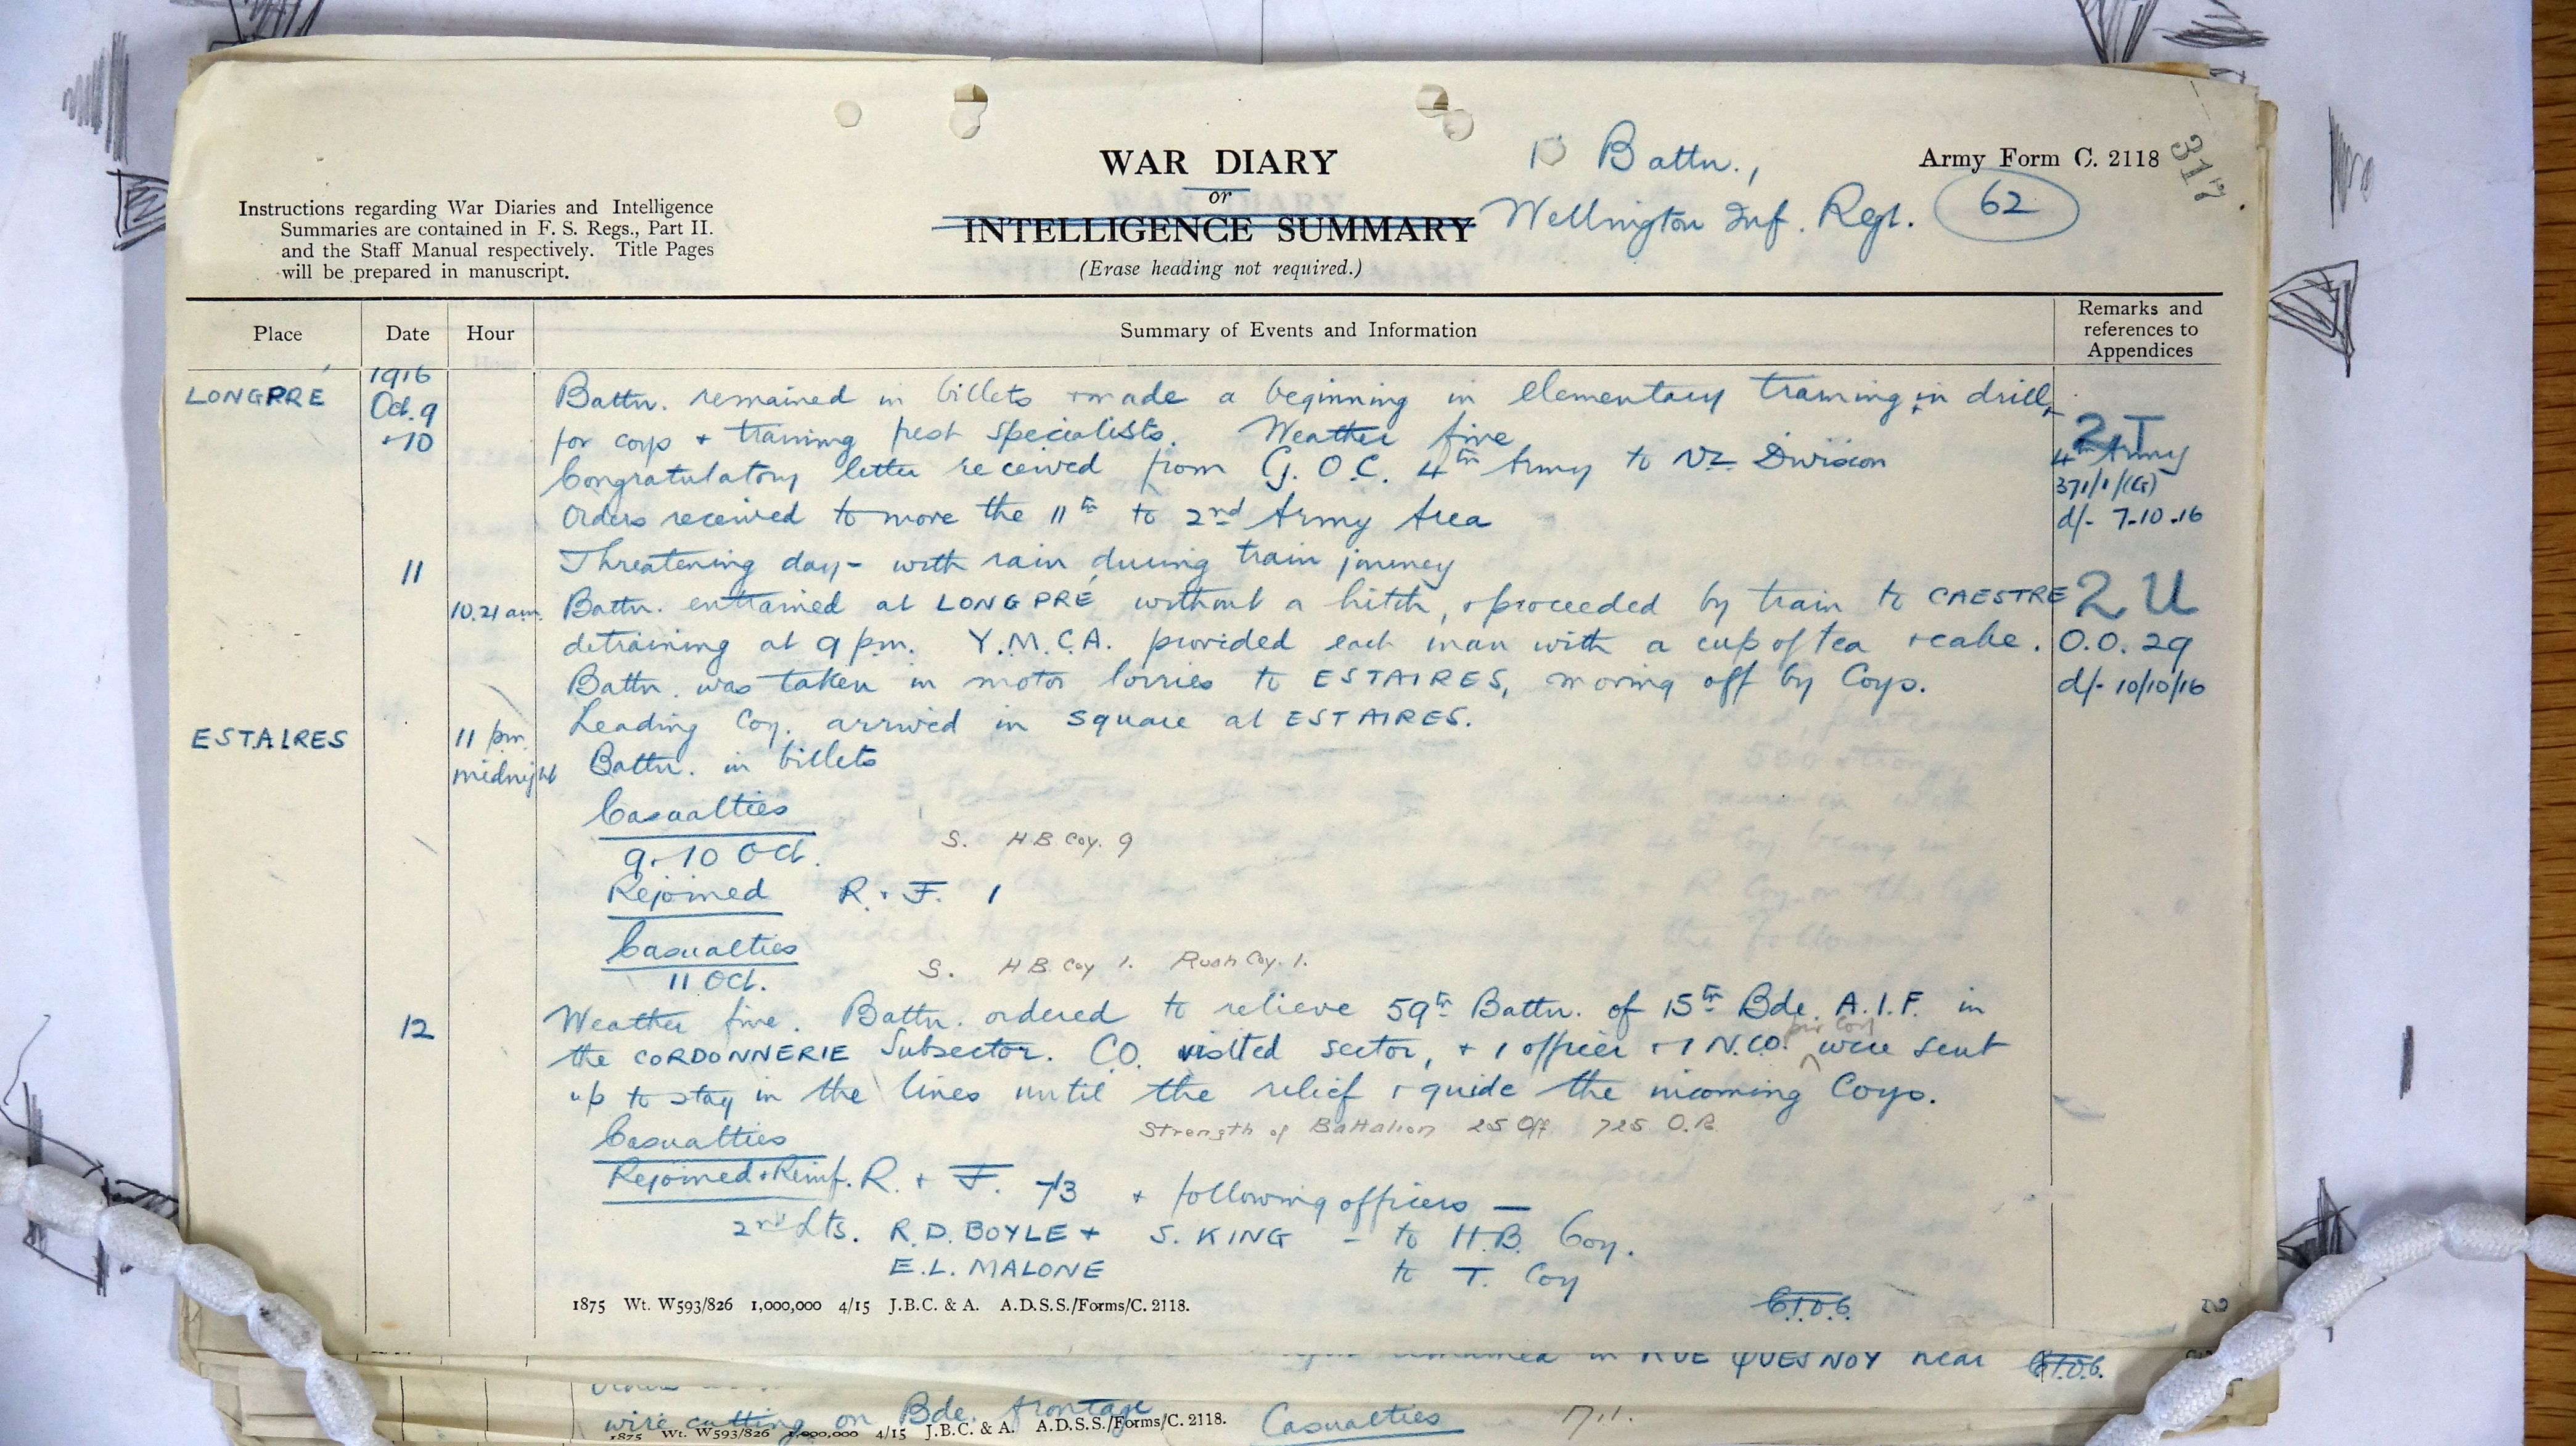 WAR DIARY
or
INTELLIGENCE SUMMARY
(Erase heading not required.)
Instructions regarding War Diaries and Intelligence
Summaries are contained in F. S. Regs., Part II.
and the Staff Manual respectively. Title Pages
will be prepared in manuscript.
Battn.,
Wellington Inf. Regt.
Army Form C. 2118
62
317
Place Date Hour Summary of Events and Information Remarks and references to Appendices
LONGPRÉ 1916 Oct. 9 + 10 Battn. remained in billets + made a beginning in elementary training, in drill,
for corp + training fresh specialists. Weather fine
Congratulatory letter received from G.O.C. 4th Army to NZ Division
2T
4th Army
371/1/(G)
d/- 7.10.16
Orders received to move the 11th to 2nd Army Area
11 Threatening day - with rain during train journey
10.21 am. Battn. entrained at LONGPRÉ without a hitch, + proceeded by train to CAESTRE
detraining at 9 pm. Y.M.C.A. provided each man with a cup of tea + cake.
Battn. was taken in motor lorries to ESTAIRES, moving off by Coys.
2U
O.O. 29
d/- 10/10/16
ESTAIRES 11 pm. Leading Coy. arrived in square at ESTAIRES.
midnight Battn. in billets
Casualties
9 + 10 Oct. S. H.B. Coy. 9
Rejoined R. + F. 1
Casualties
11 Oct. S. H.B. Coy 1. Ruah Coy. 1.
12 Weather fine. Battn. ordered to relieve 59th Battn. of 15th Bde. A.I.F. in
the CORDONNERIE Subsector. C.O. visited sector, + 1 officer + 1 N.C.O. per Coy were sent
up to stay in the lines until the relief + guide the incoming Coys.
Strength of Battalion 25 Off 725 O.R.
Casualties
Rejoined + Reinf. R. + F. 73 + following officers —
2nd Lts. R.D. BOYLE + S. KING - to H.B. Coy.
E.L. MALONE to T. Coy
1875 Wt. W593/826 1,000,000 4/15 J.B.C. & A. A.D.S.S./Forms/C. 2118.
remained in RUE QUESNOY near
wire cutting on Bde. frontage
Casualties
1875 Wt. W593/826 1,000,000 4/15 J.B.C. & A. A.D.S.S./Forms/C. 2118.